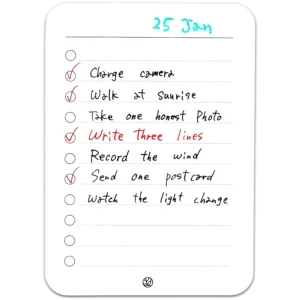 25 Jan
Charge camera
Walk at Sunrise
Take one honest Photo
Write Three lines
Record the wind
Send one postcard
Watch the light change